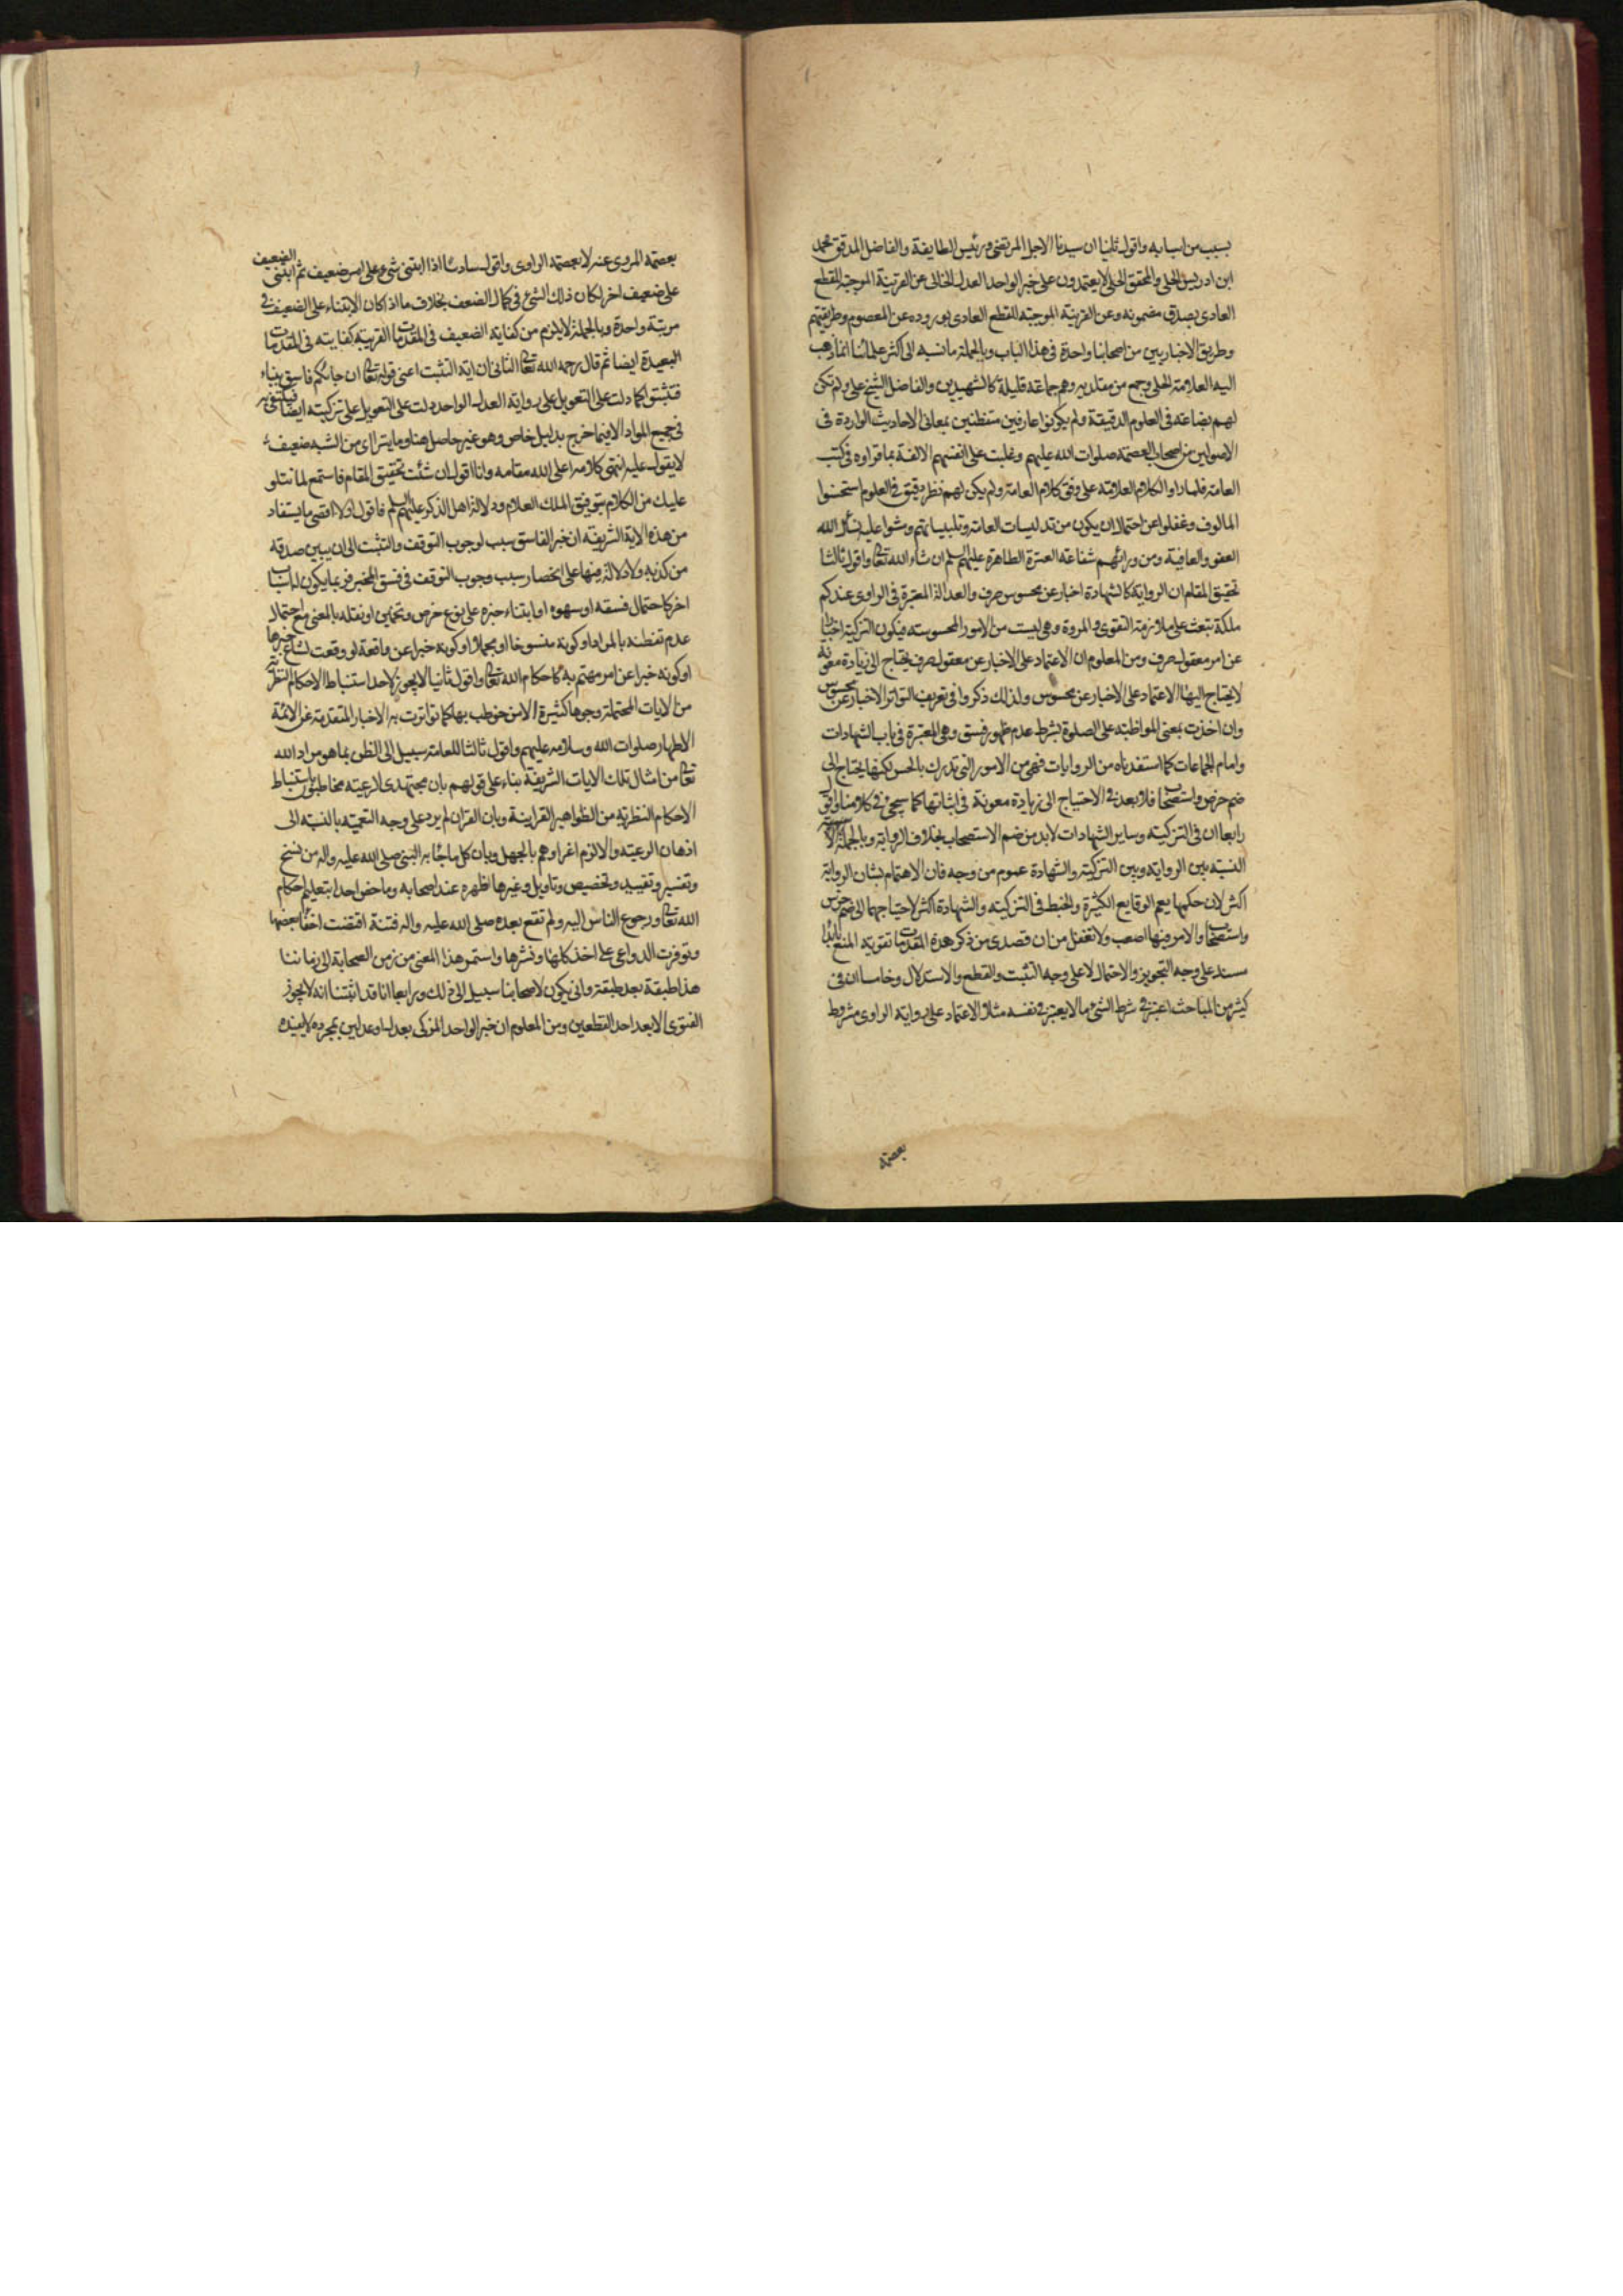 بسبب من اسبابه واقول ثانيا ان سيدنا الاجل المرتضى ورئيس الطايفة والفاضل المدقق محمد
ابن ادريس الحلى والمحقق الحلى لا يعتمدون على خبر الواحد العدل الخالى عن القرينة الموجبة للقطع
العادى بصدق مضمونه وعن القرينة الموجبة للقطع العادى بوروده عن المعصوم وطريقتهم
وطريق الاخباريين من اصحابنا واحدة فى هذا الباب وبالجملة ما نسبه الى اكثر علمائنا انما ذهب
اليه العلامة الحلى وجمع من مقلديه وهم جماعة قليلة كالشهيدين والفاضل الشيخ على ولم تكن
لهم بضاعة فى العلوم الدقيقة ولم يكونوا عارفين متفطنين بمعانى الاحاديث الواردة فى
الاصولين من اصحاب العصمة صلوات الله عليهم وغلبت على انفسهم الالفة بما قراوه فى كتب
العامة فلما راوا الكلام العلامة على وفق كلام العامة ولم يكن لهم نظر دقيق فى العلوم استحسنوا
المالوف وغفلوا عن احتمال ان يكون من تدليسات العامة وتلبيساتهم ومشوا عليه نسئل الله
العفو والعافية ومن ورائهم شفاعة العترة الطاهرة عليهم السلم ان شاء الله تعالى واقول ثالثا
تحقيق المقام ان الرواية كالشهادة اخبار عن محسوس صرف والعدالة المعتبرة فى الراوى عندكم
ملكة تبعث على ملازمة التقوى والمروة وهى ليست من الامور المحسوسة فيكون التزكية اخبارا
عن امر معقول صرف ومن المعلوم ان الاعتماد على الاخبار عن معقول صرف يحتاج الى زيادة معونة
لا يحتاج اليها الاعتماد على الاخبار عن محسوس ولذلك ذكروا فى تعريف التواتر الاخبار عن محسوس
وان اخذت بمعنى المواظبة على الصلوة بشرط عدم ظهور فسق وهى المعتبرة فى باب الشهادات
وامام الجماعات كما استفدناه من الروايات فهى من الامور التى تدرك بالحس لكنها يحتاج الى
ضم خرص واستصحاب فلا بعد فى الاحتياج الى زيادة معونة فى اثباتها كما سيجئ فى كلامنا واقول
رابعا ان فى التزكية وساير الشهادات لا بد من ضم الاستصحاب بخلاف الرواية وبالجملة
النسبة بين الرواية وبين التزكية والشهادة عموم من وجه فان الاهتمام بشان الرواية
اكثر لان حكمها يعم الوقايع الكثيرة والخبط فى التزكية والشهادة اكثر لاحتياجهما الى ضم خرص
واستصحاب والامر فيها اصعب ولا تغفل من ان قصدى من ذكر هذه المقدمات تقوية المنع
سند على وجه التجويز والاحتمال لا على وجه التثبت والقطع والاستدلال وخامسا ان فى
كثير من المباحث اعتبر فى شرط الشئ ما لا يعتبر فى نفسه مثلا الاعتماد على رواية الراوى مشروط
بعصمة
بعصمة المروى عنه لا بعصمة الراوى واقول سادسا اذا ابتنى شئ على امر ضعيف ثم ابتنى الضعيف
على ضعيف اخر لكان ذلك الشئ فى كمال الضعف بخلاف ما اذا كان الابتناء على الضعيف فى
مرتبة واحدة وبالجملة لا يلزم من كفاية الضعيف فى المقدمات القريبة كفايته فى المقدمات
البعيدة ايضا ثم قال رحمه الله تعالى الثانى ان اية التثبت اعنى قوله تعالى ان جائكم فاسق بنباء
فتثبتوا كما دلت على التعويل على رواية العدل الواحد دلت على التعويل على تزكيته ايضا فيكتفى به
فى جميع المواد الا فيما خرج بدليل خاص وهو غير حاصل هنا وما يتراى من الشبه ضعيف
لا يقول عليه انتهى كلامه اعلى الله مقامه وانا اقول ان شئت تحقيق المقام فاستمع لما نتلو
عليك من الكلام بتوفيق الملك العلام ودلالة اهل الذكر عليهم السلم فاقول اولا اقصى ما يستفاد
من هذه الاية الشريفة ان خبر الفاسق سبب لوجوب التوقف والتثبت الى ان يبين صدقه
من كذبه ولا دلالة فيها على انحصار سبب وجوب التوقف فى فسق المخبر فربما يكون له اسباب
اخر كاحتمال فسقه او سهوه او ابتناء خبره على نوع خرص وتخمين او نقله بالمعنى مع احتمال
عدم تفطنه بالمراد او كونه منسوخا او مجملا او كونه خبرا عن واقعة لو وقعت لشاع خبرها
او كونه خبرا عن امر مهتم به كاحكام الله تعالى واقول ثانيا لا يجوز لاحد استنباط الاحكام النظرية
من الايات المحتملة وجوها كثيرة الا من خوطب بها كما تواترت به الاخبار المتقدمة عن الائمة
الاطهار صلوات الله وسلامه عليهم واقول ثالثا للعامة سبيل الى الظن بما هو مراد الله
تعالى من امثال تلك الايات الشريفة بناء على قولهم بان مجتهدى الرعية مخاطبون باستنباط
الاحكام النظرية من الظواهر القرانية وبان القران لم يرد على وجه التعمية بالنسبة الى
اذهان الرعية والا لزم اغراوهم بالجهل وبان كل ما جاء به النبى صلى الله عليه واله من نسخ
وتفسير وتقييد وتخصيص وتاويل وغيرها اظهره عند اصحابه وما خص احدا بتعليم احكام
الله تعالى ورجوع الناس اليه ولم تقع بعده صلى الله عليه واله فتنة اقتضت اخفاء بعضها
وتوفرت الدواعى على اخذ كلها ونشرها واستمر هذا المعنى من زمن الصحابة الى زماننا
هذا طبقة بعد طبقة وانى يكون لاصحابنا سبيل الى ذلك ورابعا انا قد اثبتنا انه لا يجوز
الفتوى الا بعد احد القطعين ومن المعلوم ان خبر الواحد المزكى بعدل او عدلين بمجرده لا يفيده